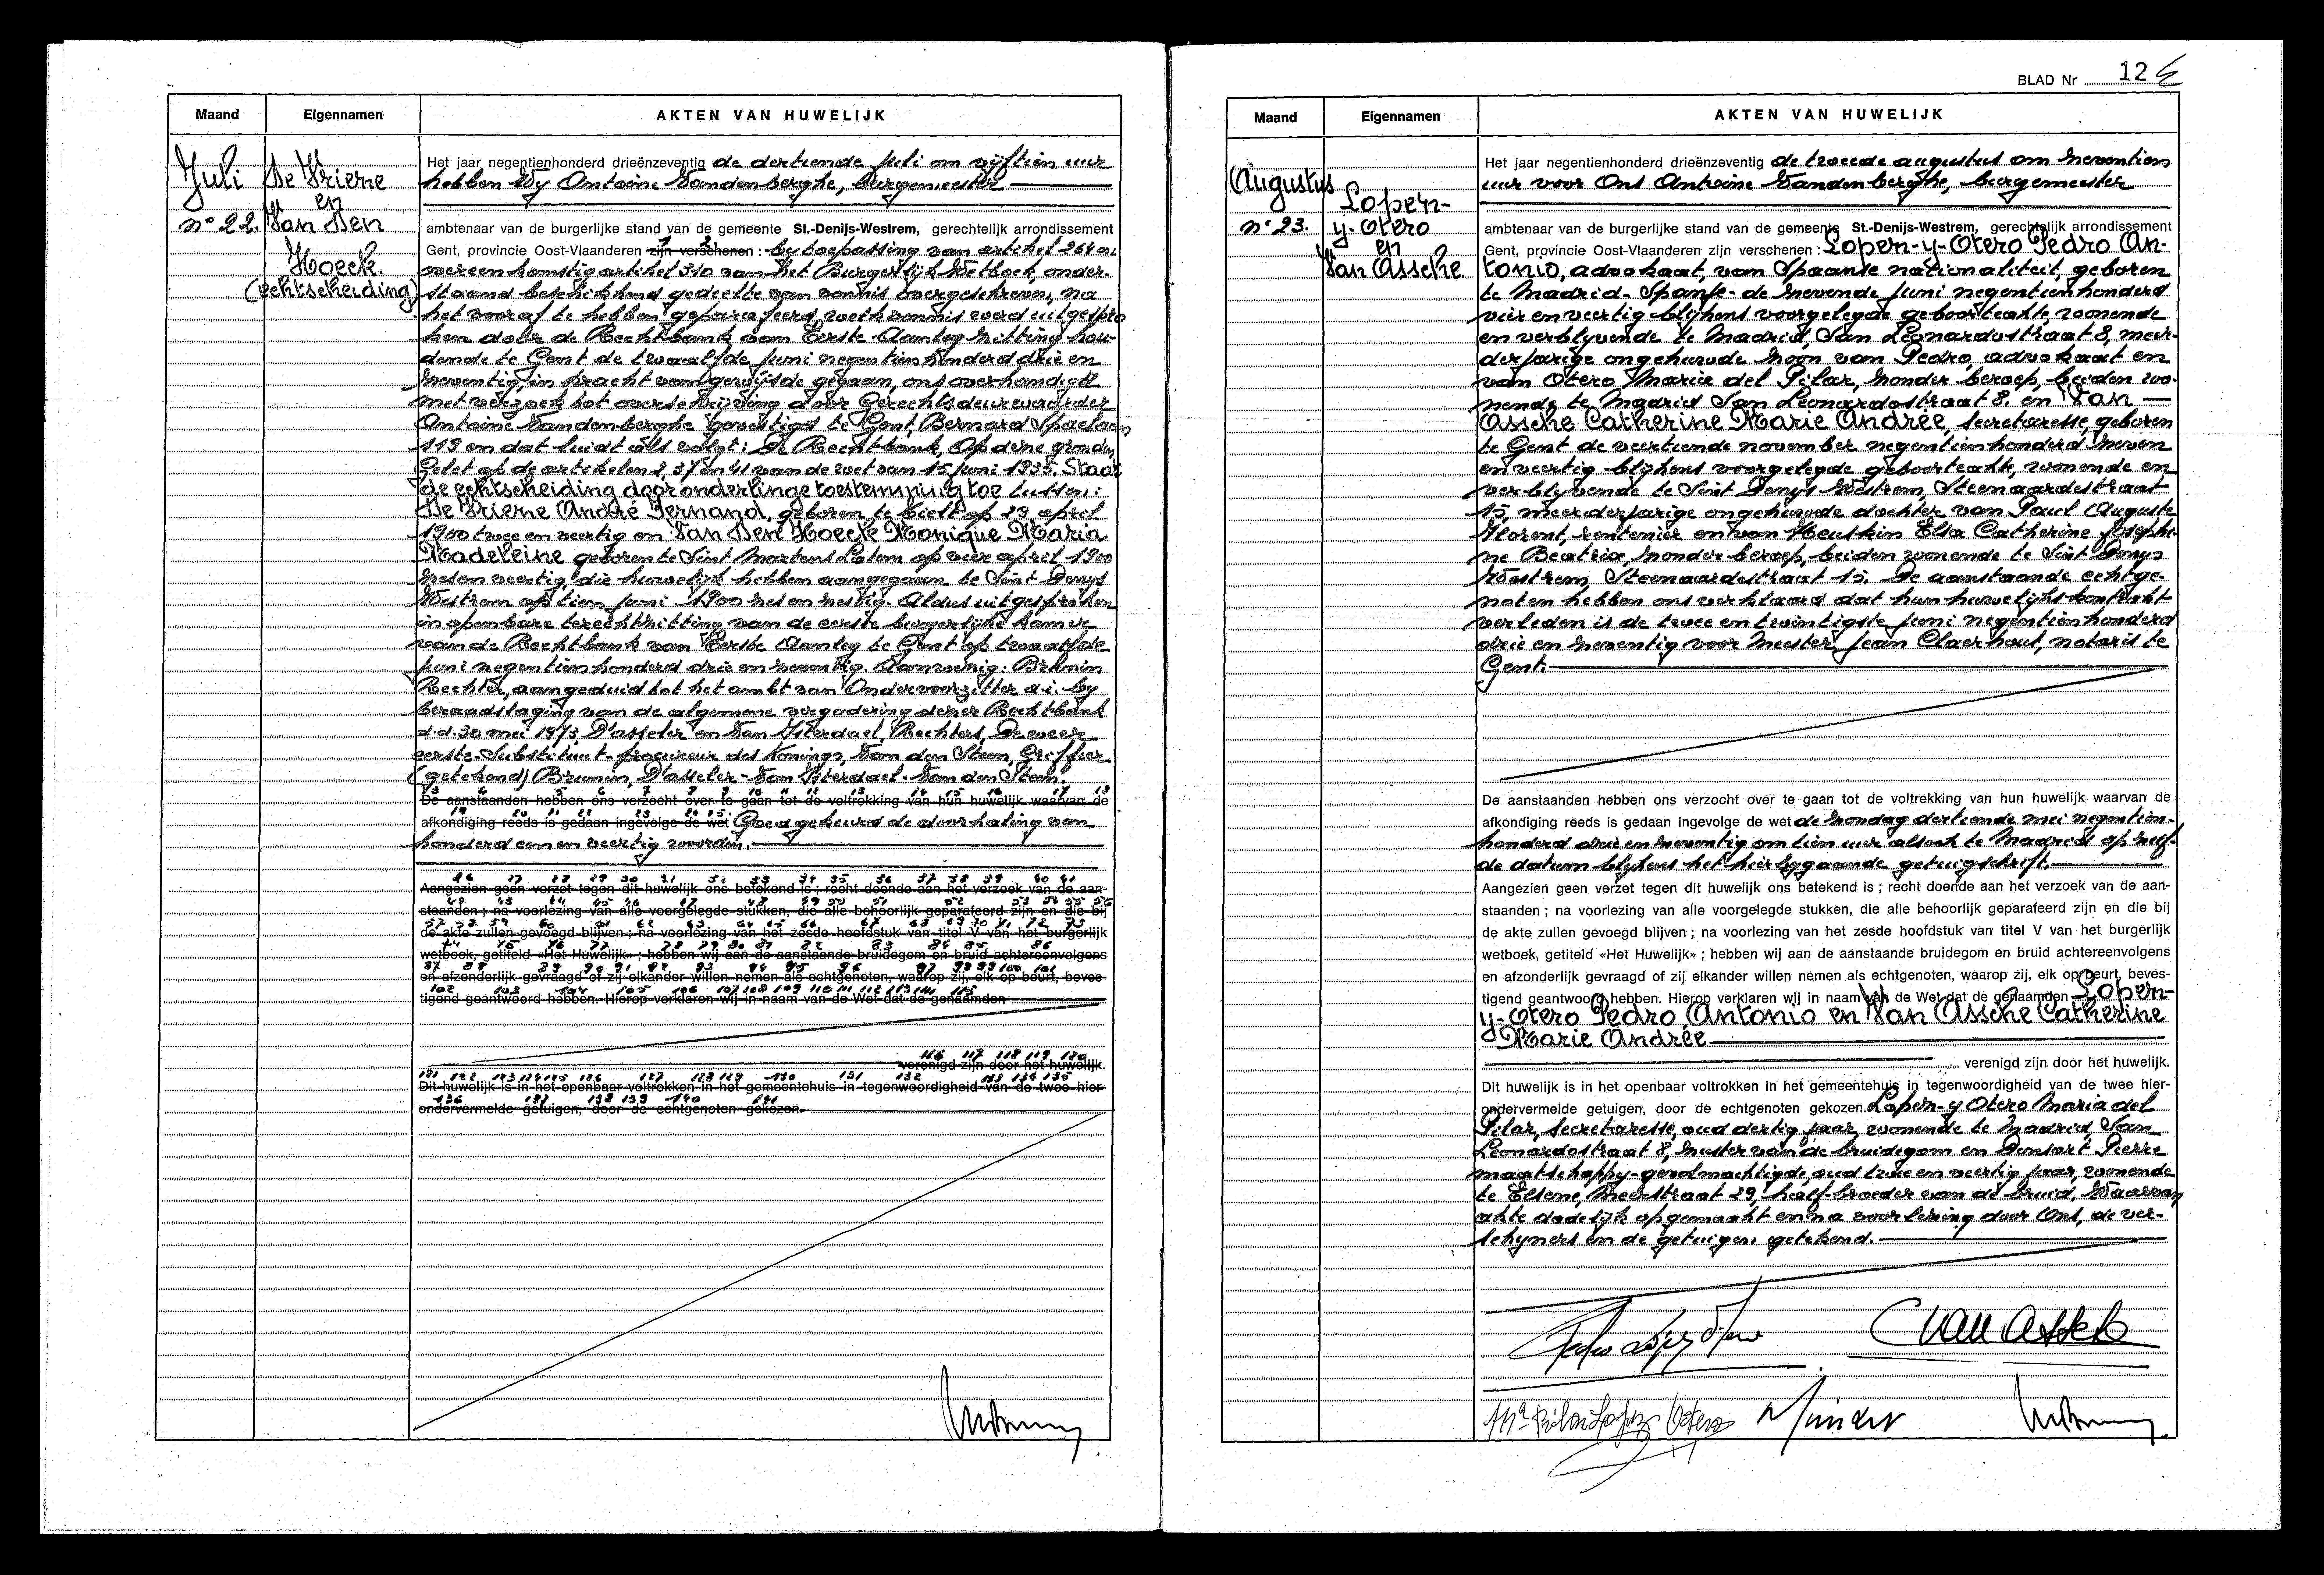 Maand
Eigennamen
AKTEN VAN HUWELIJK
Juli
n° 22.
De Vriene
en
Van Den
Hoeck.
(echtscheiding)
Het jaar negentienhonderd drieënzeventig de dertiende juli om vijftien uur
hebben Wy Antoine Vandenberghe, burgemeester
ambtenaar van de burgerlijke stand van de gemeente St.-Denijs-Westrem, gerechtelijk arrondissement
Gent, provincie Oost-Vlaanderen zijn verschenen : by toepassing van artikel 264 en
overeenkomstig artikel 310 van het Burgerlijk Wetboek, onder-
staand beschikkend gedeelte van vonnis overgeschreven, na
het vooraf te hebben geparafeerd, welk vonnis werd uitgespro
ken door de Rechtbank van Eerste Aanleg zitting hou-
dende te Gent de twaalfde juni negentienhonderd drie en
zeventig, in kracht van gewijsde gegaan, ons overhandigd
met verzoek tot overschrijving door Gerechtsdeurwaarder
Antoine Vandenberghe gevestigd te Gent, Bernard Spaelaan
119 en dat luidt als volgt : De Rechtbank, Op deze gronden,
Gelet op de artikelen 2, 37 en 41 van de wet van 15 juni 1935. Staat
de echtscheiding door onderlinge toestemming toe tussen :
De Vriene André Fernand, geboren te Tielt op 29 april
1900 twee en veertig en Van Den Hoecke Monique Maria
Madeleine geboren te Sint Martens Latem op vier april 1900
zesen veertig, die huwelijk hebben aangegaan te Sint Denys
Westrem op tien juni 1900 zes en zestig. Aldus uitgesproken
in openbare terechtzitting van de eerste burgerlijke kamer
van de Rechtbank van Eerste Aanleg te Gent op twaalfde
juni negentienhonderd drie en zeventig. Aanwezig : Brunin
Rechter, aangeduid tot het ambt van Ondervoorzitter d.i. by
beraadslaging van de algemene vergadering dezer Rechtbank
d.d. 30 mei 1973 D'asseler en Van Ysterdael, Rechters, Deweer
eerste-Substituut-procureur des Konings, Van den Steen, Griffier
(getekend) Brunin, D'asseler - Van Ysterdael - Van den Steen.
De aanstaanden hebben ons verzocht over te gaan tot de voltrekking van hun huwelijk waarvan de
afkondiging reeds is gedaan ingevolge de wet Goedgekeurd de doorhaling van
honderd een en veertig woorden.
Aangezien geen verzet tegen dit huwelijk ons betekend is ; recht doende aan het verzoek van de aan-
staanden ; na voorlezing van alle voorgelegde stukken, die alle behoorlijk geparafeerd zijn en die bij
de akte zullen gevoegd blijven ; na voorlezing van het zesde hoofdstuk van titel V van het burgerlijk
wetboek, getiteld «Het Huwelijk» ; hebben wij aan de aanstaande bruidegom en bruid achtereenvolgens
en afzonderlijk gevraagd of zij elkander willen nemen als echtgenoten, waarop zij, elk op beurt, beves-
tigend geantwoord hebben. Hierop verklaren wij in naam van de Wet dat de genaamden
verenigd zijn door het huwelijk.
Dit huwelijk is in het openbaar voltrokken in het gemeentehuis in tegenwoordigheid van de twee hier-
ondervermelde getuigen, door de echtgenoten gekozen.
BLAD Nr 12
Maand
Eigennamen
AKTEN VAN HUWELIJK
Augustus
n° 23.
Lopez-
y-Otero
en
Van Assche
Het jaar negentienhonderd drieënzeventig de tweede augustus om zeventien
uur voor Ons Antoine Vandenberghe, burgemeester
ambtenaar van de burgerlijke stand van de gemeente St.-Denijs-Westrem, gerechtelijk arrondissement
Gent, provincie Oost-Vlaanderen zijn verschenen : Lopez-y-Otero Pedro An-
tonio, advokaat, van Spaanse nationaliteit, geboren
te Madrid - Spanje - de zevende juni negentienhonderd
vier en veertig blijkens voorgelegde geboorteakte, wonende
en verblyvende te Madrid, San Leonardostraat 8, meer-
derjarige ongehuwde zoon van Pedro, advokaat en
van Otero Maria del Pilar, zonder beroep, beiden wo-
nende te Madrid San Leonardostraat 8. en Van
Assche Catherine Marie Andrée, secretaresse, geboren
te Gent de veertiende november negentienhonderd zeven
en veertig blijkens voorgelegde geboorteakte, wonende en
verblyvende te Sint Denys Westrem, Steenaardestraat
15, meerderjarige ongehuwde dochter van Paul Auguste
Florent, rentenier en van Heuskin Elsa Catherine Josephi-
ne Beatrix, zonder beroep, beiden wonende te Sint Denys
Westrem, Steenaardestraat 15. De aanstaande echtge-
noten hebben ons verklaard dat hun huwelijkskontrakt
verleden is de twee en twintigste juni negentienhonderd
drie en zeventig voor Meester Jean Claerhout, notaris te
Gent.
De aanstaanden hebben ons verzocht over te gaan tot de voltrekking van hun huwelijk waarvan de
afkondiging reeds is gedaan ingevolge de wet de zondag dertiende mei negentien-
honderd drie en zeventig om tien uur alsook te Madrid op zelf-
de datum blijkens het hierbygaande getuigschrift.
Aangezien geen verzet tegen dit huwelijk ons betekend is ; recht doende aan het verzoek van de aan-
staanden ; na voorlezing van alle voorgelegde stukken, die alle behoorlijk geparafeerd zijn en die bij
de akte zullen gevoegd blijven ; na voorlezing van het zesde hoofdstuk van titel V van het burgerlijk
wetboek, getiteld «Het Huwelijk» ; hebben wij aan de aanstaande bruidegom en bruid achtereenvolgens
en afzonderlijk gevraagd of zij elkander willen nemen als echtgenoten, waarop zij, elk op beurt, beves-
tigend geantwoord hebben. Hierop verklaren wij in naam van de Wet dat de genaamden Lopez-
y-Otero Pedro Antonio en Van Assche Catherine
Marie Andrée
verenigd zijn door het huwelijk.
Dit huwelijk is in het openbaar voltrokken in het gemeentehuis in tegenwoordigheid van de twee hier-
ondervermelde getuigen, door de echtgenoten gekozen. Lopez-y Otero Maria del
Pilar, secretaresse, oud dertig jaar, wonende te Madrid, San
Leonardostraat 8, zuster van de bruidegom en Dumart Pierre
maatschappy-gevolmachtigde, oud twee en veertig jaar, wonende
te Elsene, Meerstraat 29, half-broeder van de bruid. Waarvan
akte dadelijk opgemaakt en na voorlezing door Ons, de ver-
schyners en de getuigen, getekend.
Pedro Lopez Otero
C Van Assche
Mª Pilar Lopez Otero